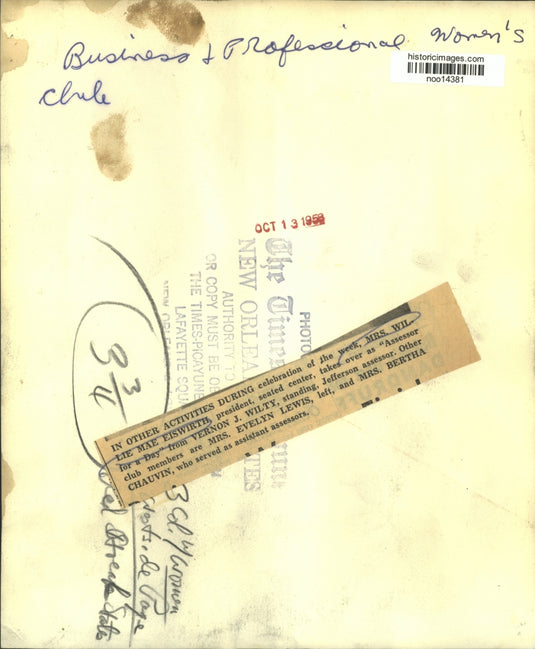 Business & Professional Women's
Club
historicimages.com
noo14381
OCT 13 1958
The Times
NEW ORLEANS STATES
PHOTO
AUTHORITY TO
OR COPY MUST BE OB
THE TIMES-PICAYUNE
LAFAYETTE SQU
NEW ORLE
IN OTHER ACTIVITIES DURING celebration of the week, MRS. WIL-
LIE MAE EISWIRTH, president, seated center, takes over as "Assessor
for a Day" from VERNON J. WILTY, standing, Jefferson assessor. Other
club members are MRS. EVELYN LEWIS, left, and MRS. BERTHA
CHAUVIN, who served as assistant assessors.
3 3/4
3 Col. W/ Women